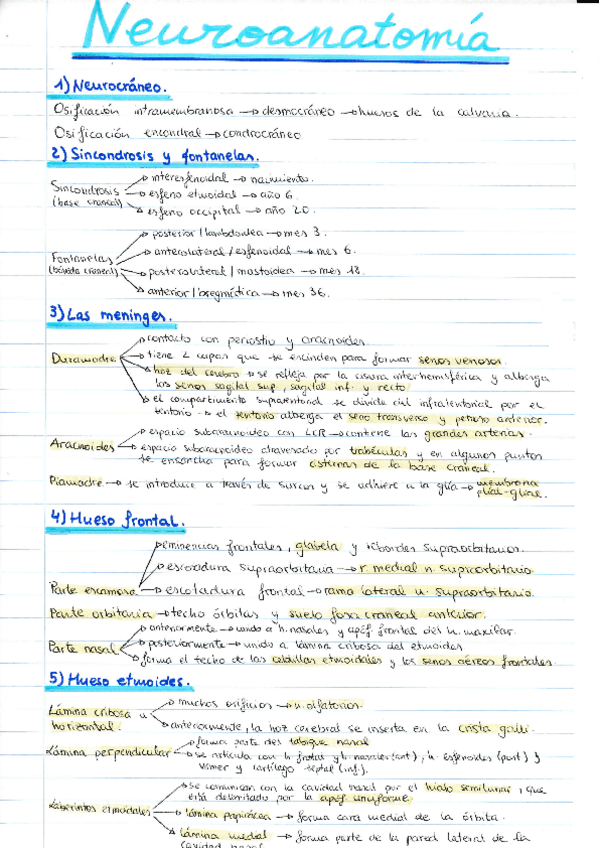 Neuroanatomía
1) Neurocráneo.
Osificación intramembranosa → desmocráneo → huesos de la calvaria.
Osificación encondral → condrocráneo
2) Sincondrosis y fontanelas.
Sincondrosis (base craneal) → interesfenoidal → nacimiento.
→ esfeno etmoidal → año 6.
→ esfeno occipital → año 20.
Fontanelas (bóveda craneal) → posterior / lambdoidea → mes 3.
→ anterolateral / esfenoidal → mes 6.
→ posterolateral / mastoidea → mes 18.
→ anterior / bregmática → mes 36.
3) Las meninges.
Duramadre → contacto con periostio y aracnoides.
→ tiene 2 capas que se escinden para formar senos venosos.
→ hoz del cerebro → se refleja por la cisura interhemisférica y alberga
los senos sagital sup, sagital inf. y recto
→ el compartimento supratentorial se divide del infratentorial por el
tentorio → el tentorio alberga el seno transverso y petroso
Aracnoides → espacio subaracnoideo con LCR → contiene las grandes arterias.
→ espacio subaracnoideo atravesado por trabéculas y en algunos puntos
se ensancha para formar cisternas de la base craneal.
Piamadre → se introduce a través de surcos y se adhiere a la glía → membrana
pial-glial.
4) Hueso frontal.
Parte escamosa → eminencias frontales, glabela y rebordes supraorbitarios.
→ escotadura supraorbitaria → r medial n. supraorbitario
→ escotadura frontal → rama lateral n. supraorbitario.
Parte orbitaria → techo órbitas y suelo fosa craneal anterior.
Parte nasal → anteriormente → unido a h. nasales y apóf. frontal del h. maxilar.
→ posteriormente → unido a lámina cribosa del etmoides
→ forma el techo de las celdillas etmoidales y los senos aéreos frontales.
5) Hueso etmoides.
Lámina cribosa u horizontal. → muchos orificios → n. olfatorios.
→ anteriormente, la hoz cerebral se inserta en la crista galli.
Lámina perpendicular → forma parte del tabique nasal
→ se articula con h. frontal y h. nasales (ant), h. esfenoides (post) y
vómer y cartílago septal (inf).
Laberintos etmoidales → se comunican con la cavidad nasal por el hiato semilunar, que
está delimitado por la apóf. unciforme.
→ lámina papirácea → forma cara medial de la órbita.
→ lámina medial → forma parte de la pared lateral de la
cavidad nasal